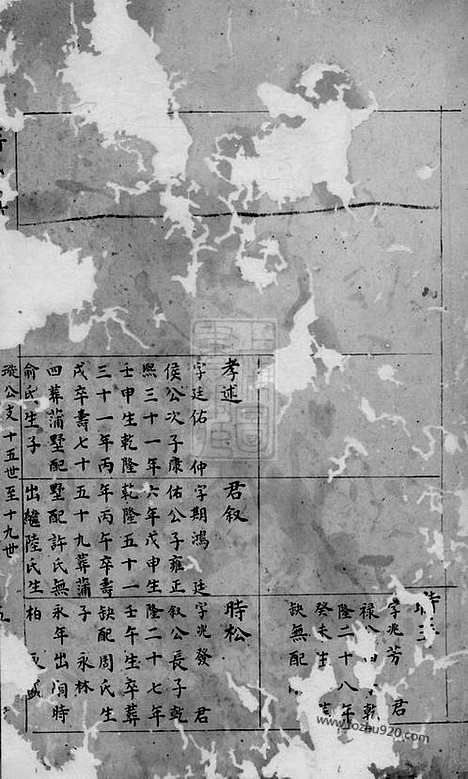 時
字兆芳 君
祿公 乾
隆二十八年
癸未生
缺無配
孝述
字廷佑 仲
侯公次子康
熙三十一年
壬申生乾隆
三十一年丙
戌卒壽七十
四葬蒲墅配
俞氏生子
君叙
字期鴻 廷
佑公子雍正
六年戊申生
乾隆五十一
年丙午卒壽
五十九葬蒲
墅配許氏無
出繼陸氏生
時松
字兆發 君
叙公長子乾
隆二十七年
壬午生卒葬
缺配周氏生
子 永林
永年出 時
柏
公支 十五世至十九世
www.fozhu920.com